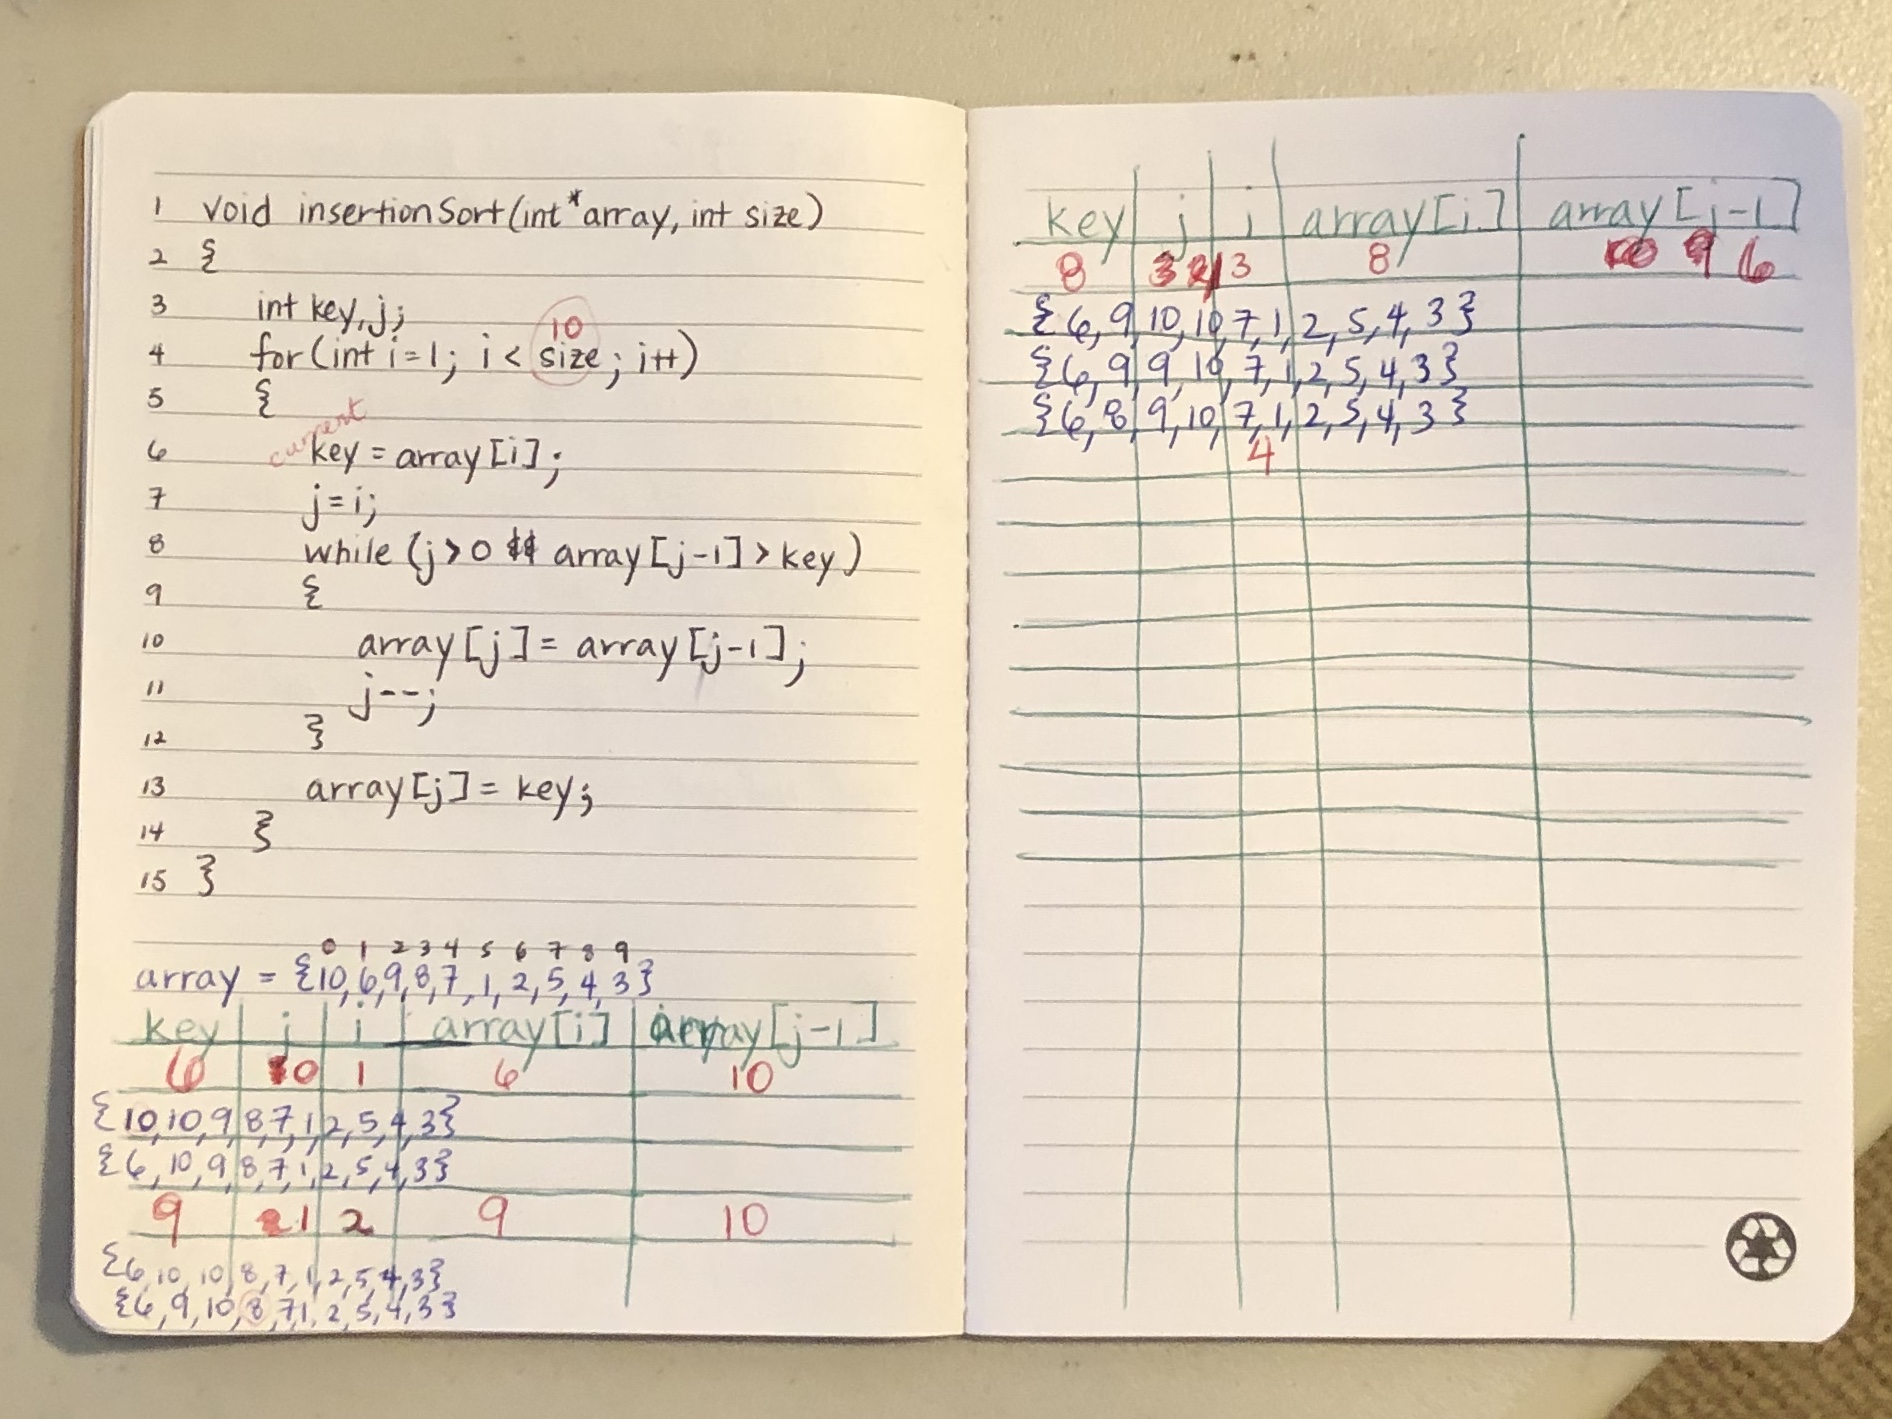 1 void insertionSort(int*array, int size)
2 {
3 int key, j;
10
4 for(int i=1; i < size; i++)
5 {
current
6 key = array[i];
7 j=i;
8 while (j>0 && array[j-1]>key)
9 {
10 array[j] = array[j-1];
11 j--;
12 }
13 array[j] = key;
14 }
15 }
0 1 2 3 4 5 6 7 8 9
array = {10,6,9,8,7,1,2,5,4,3}
key j i array[i] array[j-1]
6 1 0 1 6 10
{10,10,9,8,7,1,2,5,4,3}
{6,10,9,8,7,1,2,5,4,3}
9 2 1 2 9 10
{6,10,10,8,7,1,2,5,4,3}
{6,9,10,8,7,1,2,5,4,3}
key j i array[i] array[j-1]
8 3 2 1 3 8 10 9 6
{6,9,10,10,7,1,2,5,4,3}
{6,9,9,10,7,1,2,5,4,3}
{6,8,9,10,7,1,2,5,4,3}
4